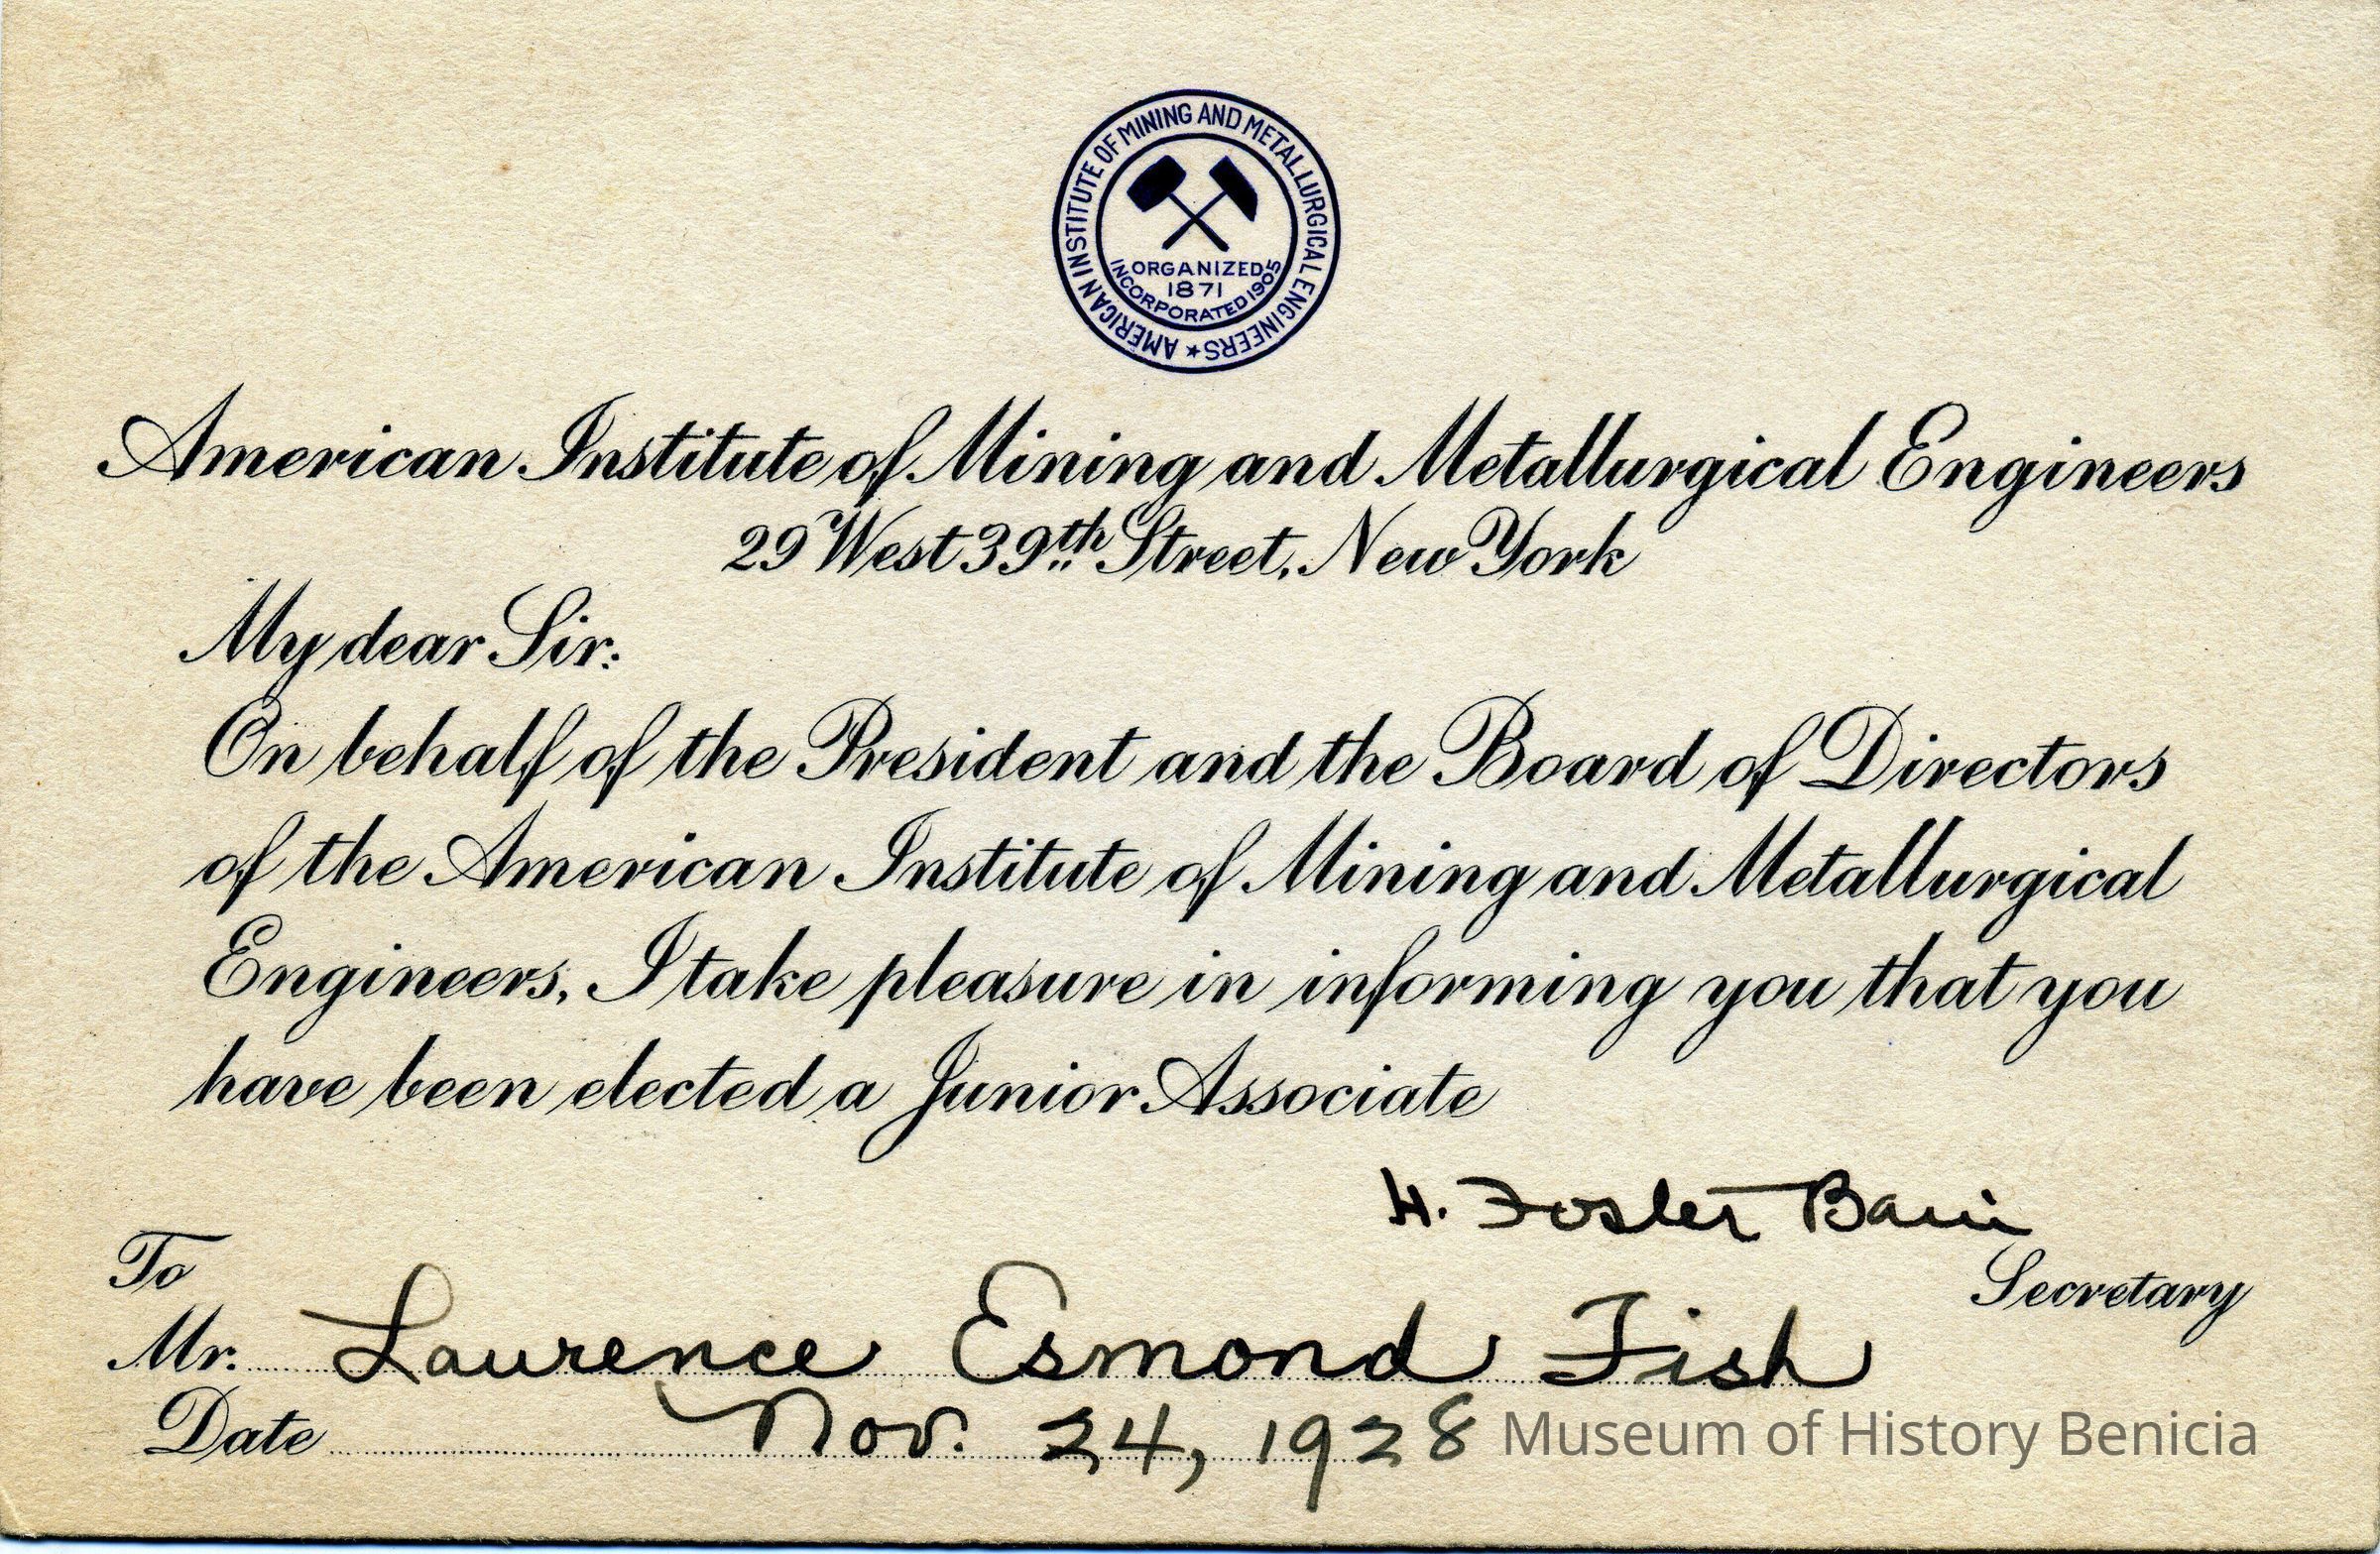 AMERICAN INSTITUTE OF MINING AND METALLURGICAL ENGINEERS ★
ORGANIZED
1871
INCORPORATED 1905
American Institute of Mining and Metallurgical Engineers
29 West 39th Street, New York
My dear Sir:
On behalf of the President and the Board of Directors
of the American Institute of Mining and Metallurgical
Engineers, I take pleasure in informing you that you
have been elected a Junior Associate
H. Foster Bain
Secretary
To
Mr. Laurence Esmond Fish
Date Nov. 24, 1928
Museum of History Benicia